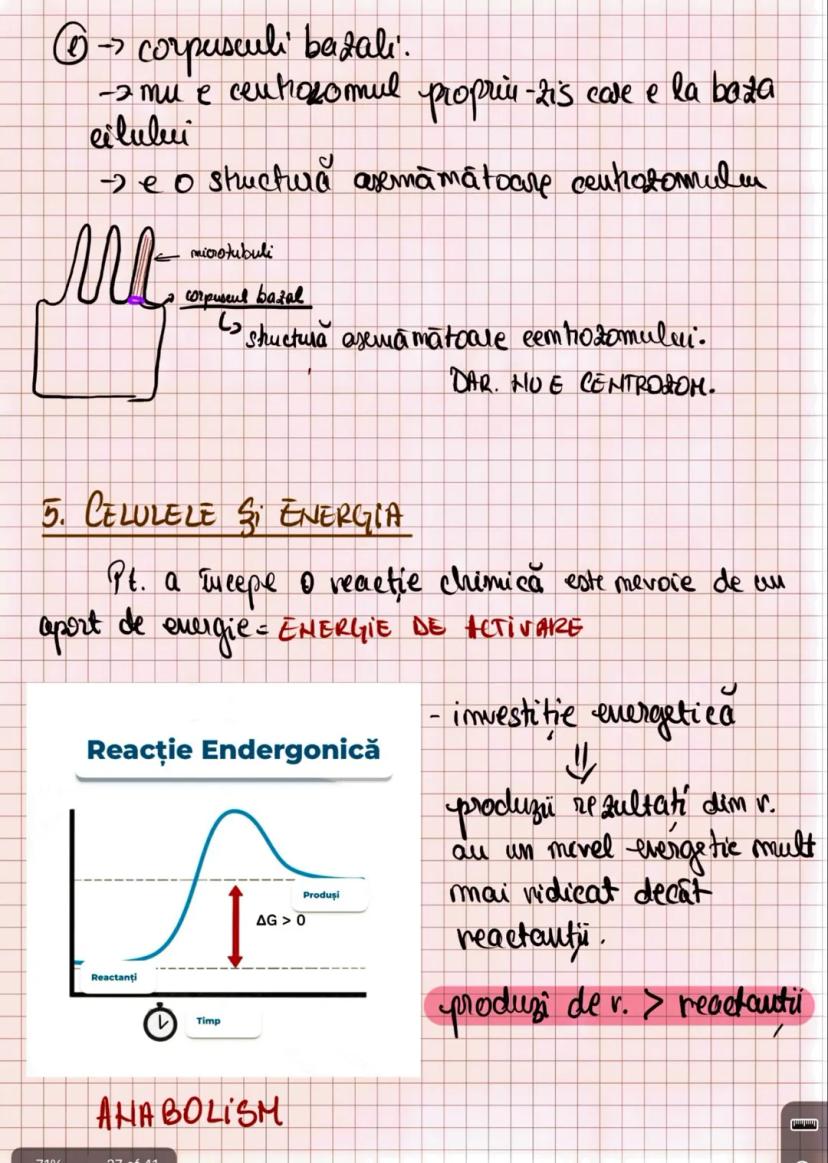 ① → corpusculi bazali.
→ nu e centrozomul propriu-zis care e la baza
cilului
→ e o structură asemămătoare centrozomului
microtubuli
corpuscul bazal
↳ structură asemămătoare centrozomului.
DAR. NU E CENTROZOM.
5. CELULELE și ENERGIA
Pt. a începe o reacție chimică este nevoie de un
aport de energie = ENERGIE DE ACTIVARE
Reacție Endergonică
Produși
ΔG > 0
Reactanți
Timp
- investiție energetică
⇓
produșii rezultați din r.
au un nivel energetic mult
mai ridicat decât
reactanții.
produși de r. > reactanții
ANABOLISM
71%
37 of 41